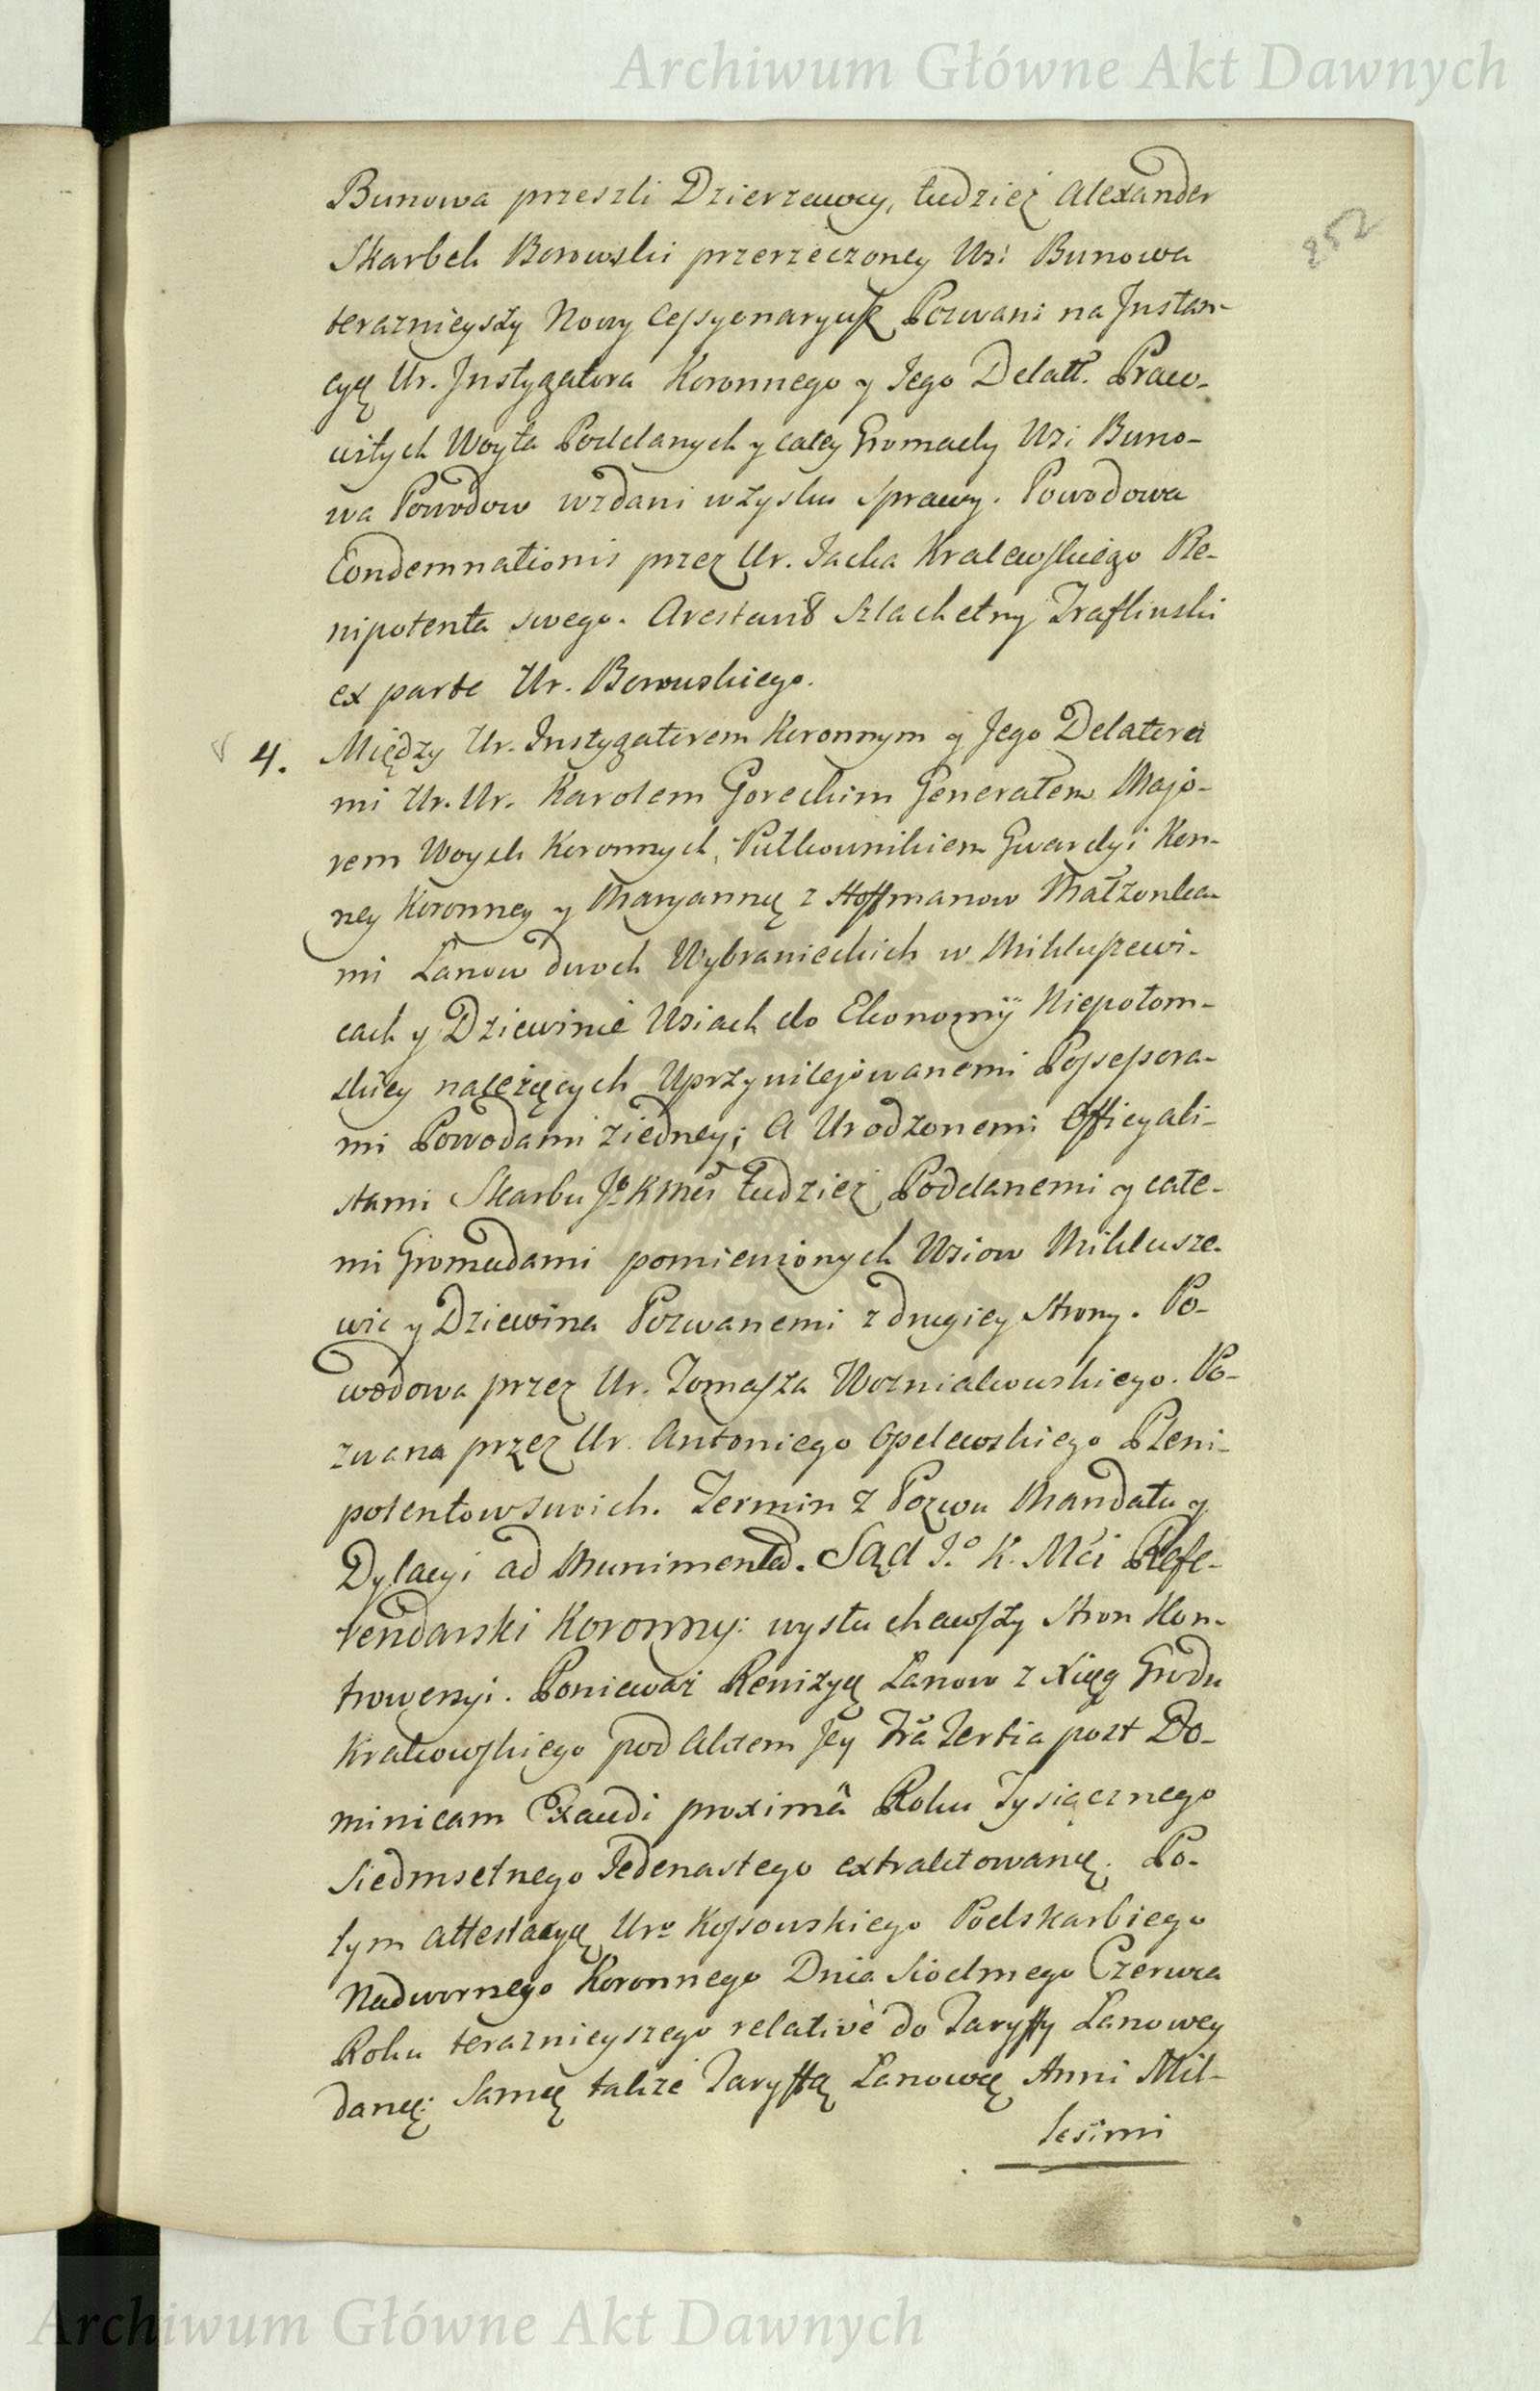 Archiwum Główne Akt Dawnych
852
Bunowa przeszli Dzierzawcy, tudzież Alexander
Skarbek Borowski przerzeczoney Wsi Bunowa
teraznieyszy Nowy Cessyonaryusz Pozwani na Instan-
cyą Ur. Instygatora Koronnego y Jego Delatt. Praco-
witych Woyta Poddanych y całey Gromady Wsi Buno-
wa Powodow wzdani w zysku sprawy. Powodowa
Condemnationis przez Ur. Jacka Kralewskiego Ple-
nipotenta swego. Arestavit Szlachetny Traflinski
ex parte Ur. Borowskiego.
4. Między Ur. Instygatorem Koronnym y Jego Delatora
mi Ur. Ur. Karolem Goreckim Generałem Majo-
rem Woysk Koronnych, Pułkownikiem Gwardyi Kon-
ney Koronney y Maryanną z Hoffmanow Małzonka-
mi Łanow dwoch Wybranieckich w Mikluszewi-
cach y Dziewinie Wsiach do Ekonomÿi Niepołom-
skiey należących Uprzywilejowanemi Possessora-
mi Powodami z iedney; A Urodzonemi Officyali-
stami Skarbu Jº K Mci tudzież Poddanemi y całe-
mi Gromadami pomienionych Wsiow Miklusze-
wic y Dziewina Pozwanemi z drugiey strony. Po-
wodowa przez Ur. Tomasza Wozniakowskiego. Po-
zwana przez Ur. Antoniego Opelewskiego Pleni-
potentow swoich. Termin z Pozwu Mandatu y
Dylacyi ad Munimenta. Sąd J.º K. Mći Refe-
rendarski Koronny: wysłuchawszy stron Kon-
trowersyi. Ponieważ Rewizyą Łanow z Xiąg Grodu
Krakowskiego pod Aktem Jey Fra Tertia post Do-
minicam Exaudi proximâ Roku Tysiącznego
Siedmsetnego Jedenastego extraktowaną. Po-
tym Attestacyą Uro Kossowskiego Podskarbiego
Nadwornego Koronnego Dnia Siodmego Czerwca
Roku teraznieyszego relativè do Taryffy Łanowey
daną; Samą także Taryffą Łanową Anni Mil-
lesimi
Archiwum Główne Akt Dawnych